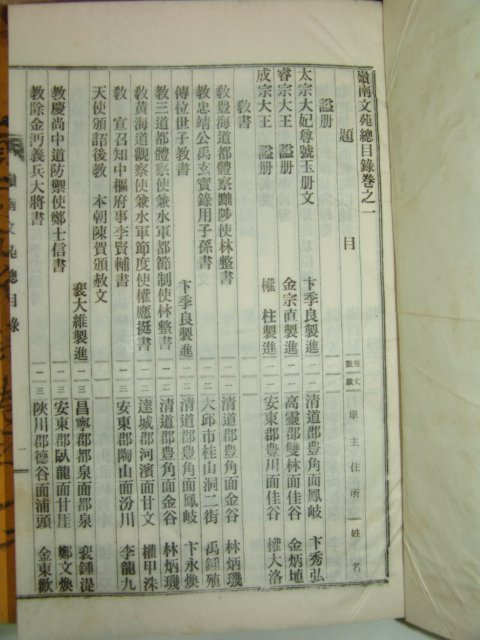 嶺南文苑總目錄卷之一
題目 卷數 丈數 單主住所 姓名
諡册
太宗大妃尊號玉册文 卞季良製進 一 二 清道郡豊角面鳳岐 卞秀弘
睿宗大王 諡册 金宗直製進 一 二 高靈郡雙林面佳谷 金炳埴
成宗大王 諡册 權 柱製進 一 二 安東郡豊川面佳谷 權大洛
敎書
敎豊海道都體察黜陟使林整書 一 二 清道郡豊角面金谷 林炳璣
敎忠靖公禹玄寶錄用子孫書 一 二 大邱市桂山洞二街 禹鍾殖
傳位世子敎書 卞季良製進 一 二 清道郡豊角面鳳岐 卞永煥
敎三道都體察使兼水軍都節制使林整書 一 二 清道郡豊角面金谷 林炳璣
敎黃海道觀察使兼水軍節度使權應挺書 一 二 達城郡河濱面甘文 權甲洙
敎 宣召知中樞府事李賢輔書 一 三 安東郡陶山面汾川 李龍九
天使頒詔後敎 本朝陳賀頒赦文
裵大維製進 一 三 昌寧郡都泉面都泉 裵鍾湜
敎慶尚中道防禦使鄭士信書 一 三 安東郡臥龍面甘厓 鄭文煥
敎除金沔義兵大將書 一 三 陜川郡德谷面浦頭 金東歡
嶺南文苑總目錄
一